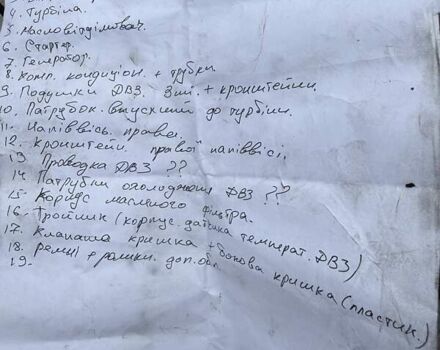 4. Турбіна.
5. Масловідділювач.
6. Стартер.
7. Генератор.
8. Комп. кондицион. + трубки
9. Подушки ДВЗ. 3шт. + кронштейни.
10. Патрубок. выускний до турбіни.
11. Напіввісь. правая.
12. Кронштейн. правої напіввісі,
13 Проводка ДВЗ ??
14 Патрубки охолодження ДВЗ ??
15. Корпус масляного фільтра.
16. тройник (корпус. датчика температ. ДВЗ)
17. Клапана кришка + бокова кришка (пластик.)
18. ремні + ролики. доп. об.
19.